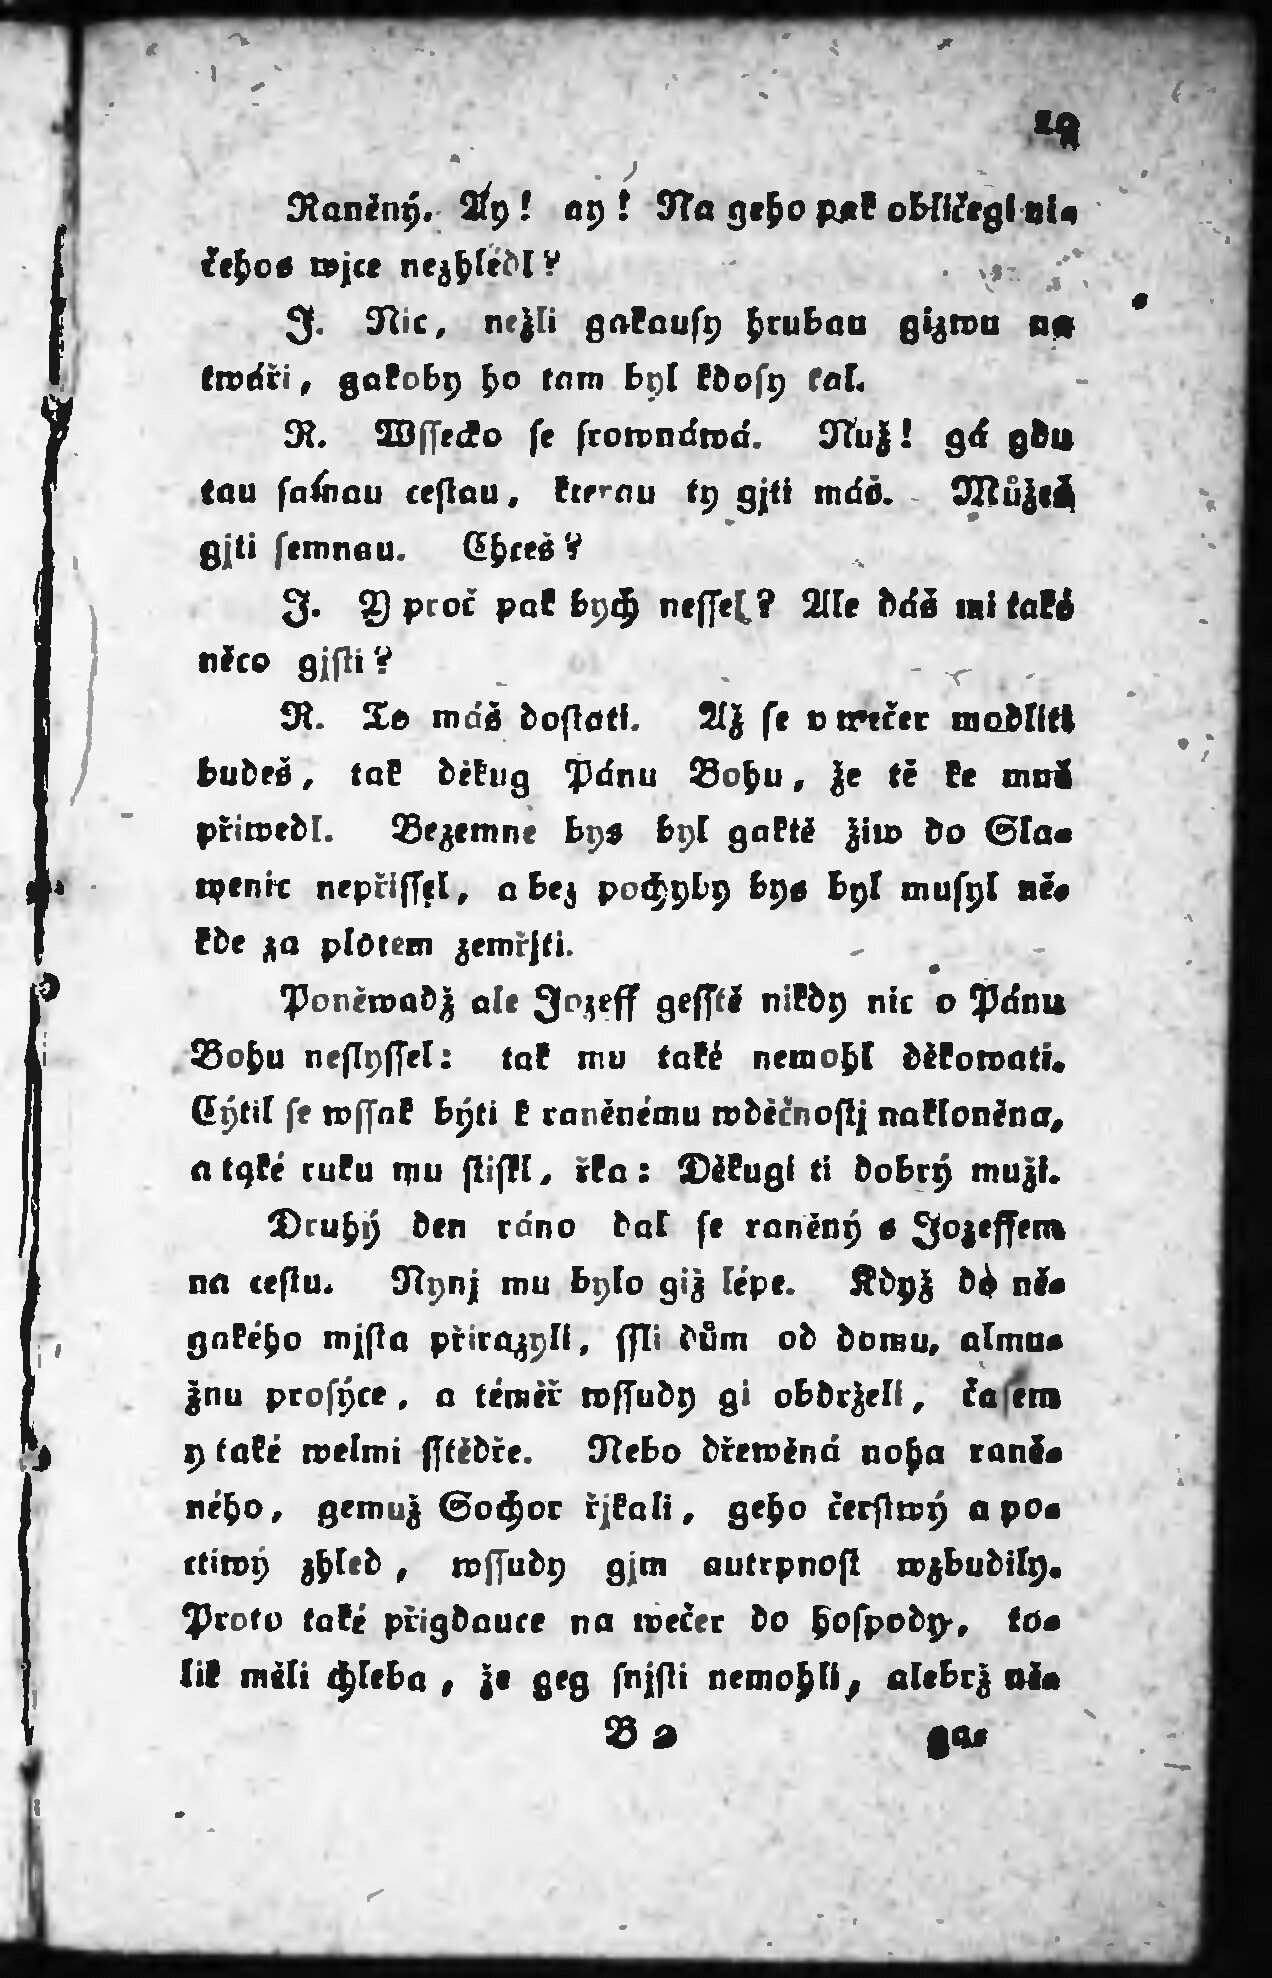 19
Raněný. Ay! ay! Na geho pak obličegi ni-
čehos wjce nezhlédl?
J. Nic, nežli gakauſy hrubau gizwu na
twáři, gakoby ho tam byl kdoſy kal.
R. Wſſecko ſe ſrownáwá. Nuž! gá gdu
tau ſamau ceſtau, kterau ty gjti máš. Můžeš
gjti ſemnau. Chceš?
J. Y proč pak bych neſſel? Ale dáš mi také
něco gjſti?
R. To máš doſtati. Až ſe v wečer modliti
budeš, tak děkug Pánu Bohu, že tě ke mně
přiwedl. Bezemne bys byl gaktě žiw do Sla-
wenic nepřiſſel, a bez pochyby bys byl muſyl ně-
kde za plotem zemřjti.
Poněwadž ale Jozeff geſſtě nikdy nic o Pánu
Bohu neſlyſſel: tak mu také nemohl děkowati.
Cýtil ſe wſſak býti k raněnému wděčnoſtj nakloněna,
a také ruku mu ſtiſkl, řka: Děkugi ti dobrý muži.
Druhý den ráno dal ſe raněný s Jozeffem
na ceſtu. Nynj mu bylo giž lépe. Když do ně-
gakého mjſta přirazyli, ſſli dům od domu, almu-
žnu proſýce, a téměř wſſudy gi obdrželi, čaſem
y také welmi ſſtědře. Nebo dřewěná noha raně-
ného, gemuž Sochor řjkali, geho čerſtwý a po-
ctiwý zhled, wſſudy gjm autrpnoſt wzbudily.
Proto také přigdauce na wečer do hoſpody, to-
lik měli chleba, že geg ſnjſti nemohli, alebrž ně-
B 2 ga-